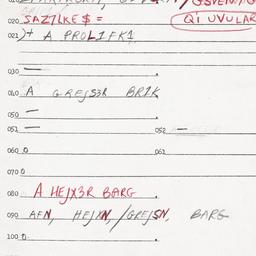 020 SAZ7LKE $ = QI UVULAR
021 )+ A PROLIFK1
030 —
010 A GREJS3R BRIK
050 —
051 — 052 —
060 0 061
070 0
080 A HEJX3R BARG
090 AFN, HEJXN, /GREJSN, BARG
100 0